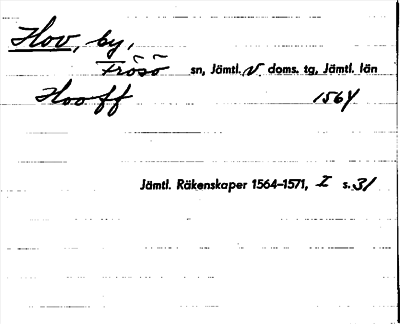 Hov, by,
Frösö sn, Jämtl. v doms. tg, Jämtl. län
Hooff 1564
Jämtl. Räkenskaper 1564–1571, I s. 31